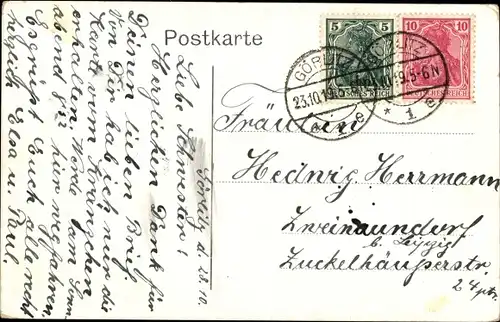 Postkarte
5 5
DEUTSCHES REICH
10 10
DEUTSCHES REICH
GÖRLITZ
23.10.19.5-6N
* 1 e
Görlitz d. 23.10.
Liebe Schwester!
Herzlichen Dank für
Deinen lieben Brief.
Von Dir hab ich nur die
Karte vom
erhalten. Werde zum Sonn
abend hier wegfahren.
Es grüßt Euch alle recht
herzlich Elsa u.
Paul.
Fräulein
Hedwig Herrmann
Zweinaundorf
b. Leipzig
Zuckelhäuserstr.
24 ptr.